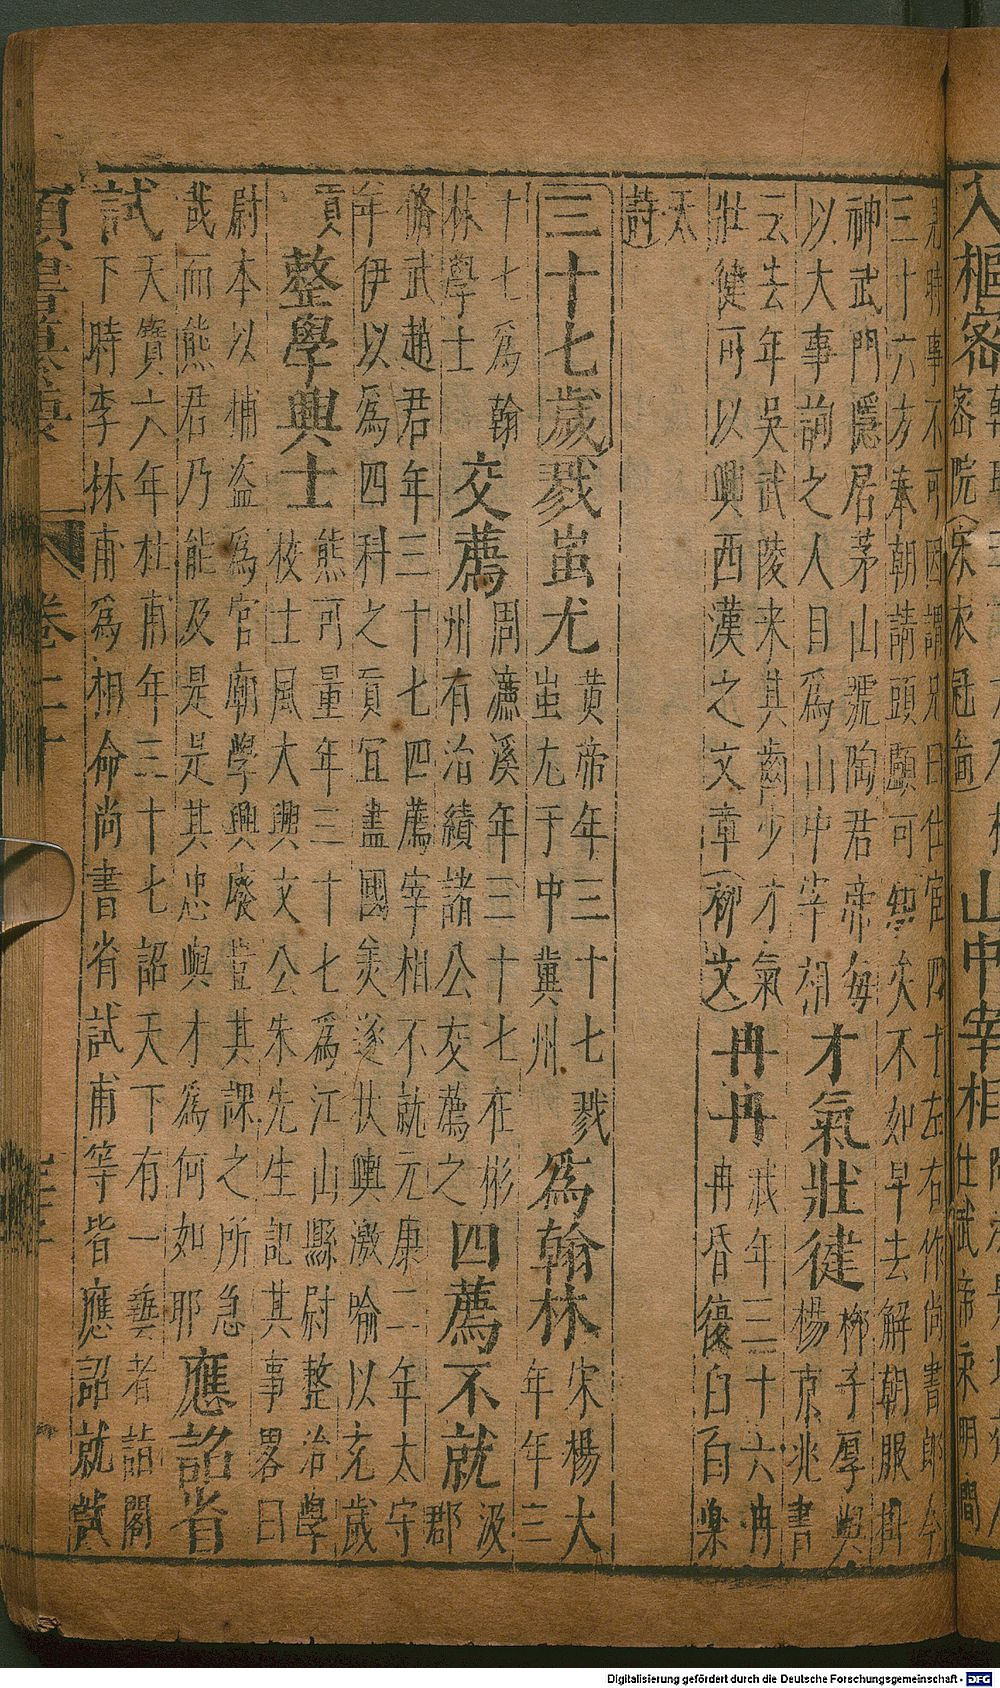 見時事不可因謂兄曰仕宦四十左右作尚書郎今
三十六方奉朝請頭顱可知矣不如早去解朝服掛
神武門隱居茅山號陶君帝每
以大事詢之人目爲山中宰相
才氣壯健
柳子厚與
楊京兆書
云去年吳武陵来其齒少才氣
壯健可以興西漢之文章(柳文)
冉冉
我年三十六冉
冉昏復白白樂
天
詩
三十七歲
戮蚩尤
黄帝年三十七戮
蚩尤于中冀州
爲翰林
宋楊大
年年三
十七爲翰
林學士
交薦
周濂溪年三十七在彬
州有治績諸公交薦之
四薦不就
汲
郡
脩武趙君年三十七四薦宰相不就元康二年太守
年伊以爲四科之貢宜盡國美遂状輿激喻以充歲
貢
整學興士
熊可量年三十七爲江山縣尉整治學
校士風大興文公朱先生記其事畧曰
尉本以捕盗爲官廟學興廢豈其課之所急
哉而熊君乃能及是是其忠與才爲何如耶
應詔省
試
天寶六年杜甫年三十七詔天下有一藝者詣闕
下時李林甫爲相命尚書省試甫等皆應詔就
卷二十
Digitalisierung gefördert durch die Deutsche Forschungsgemeinschaft - DFG